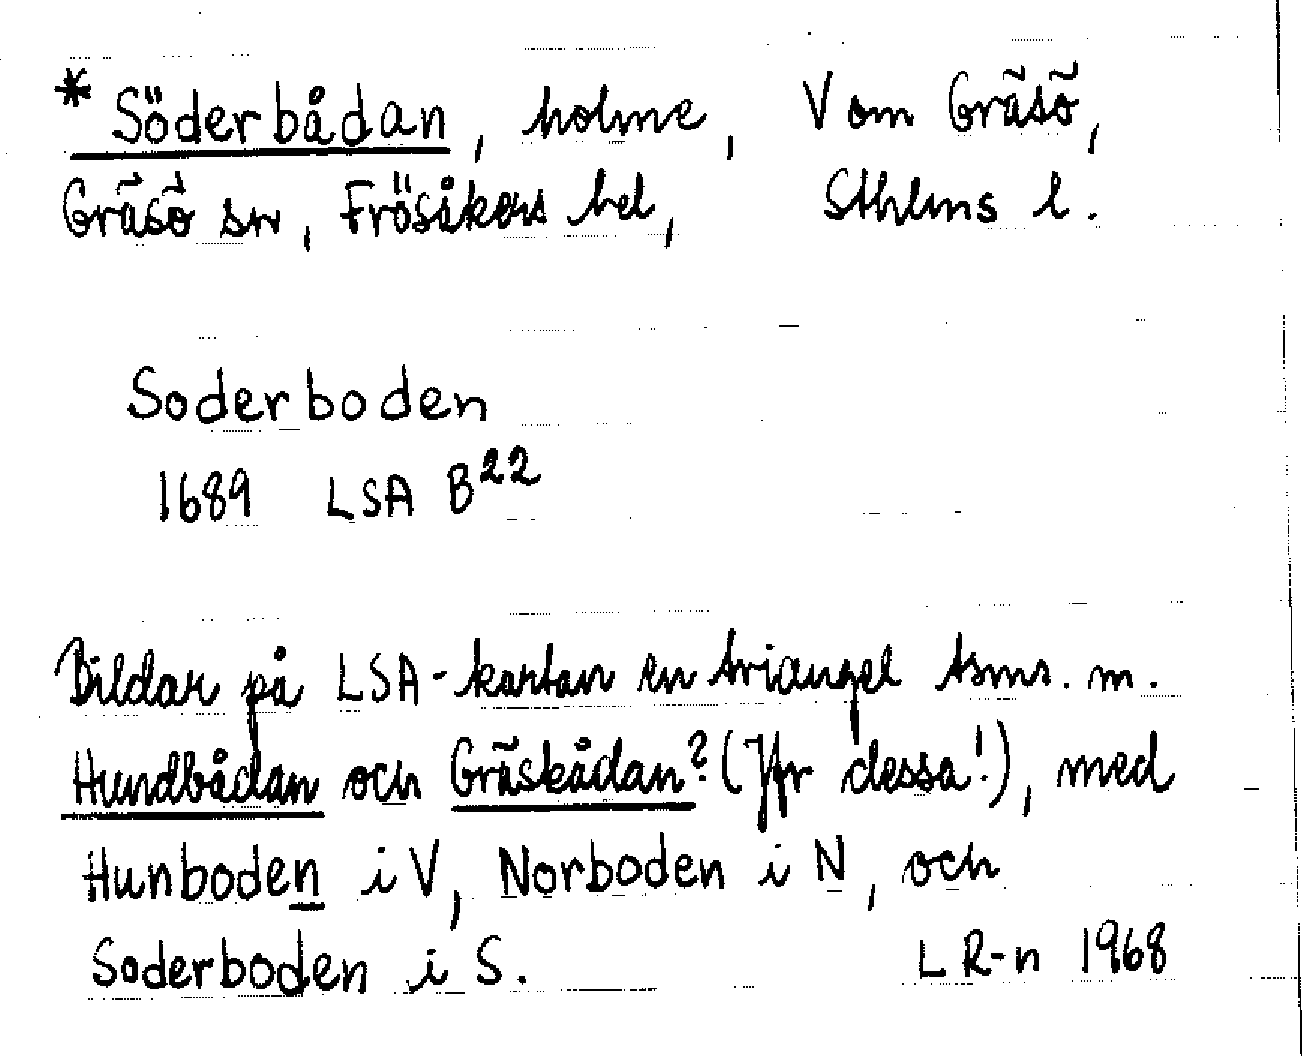 * Söderbådan, holme, V om Gräsö,
Gräsö sn, Frösåkers hd, Sthlms l.
Soderboden
1689 LSA B22
Bildar på LSA-kartan en triangel tsms. m.
Hundbådan och Gräskådan? (Jfr dessa!), med
Hunboden i V, Norboden i N, och
Soderboden i S. LR-n 1968